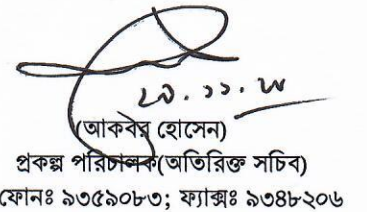 (আকবর হোসেন)
প্রকল্প পরিচালক(অতিরিক্ত সচিব)
ফোনঃ ৯৩৫৯০৮৩; ফ্যাক্সঃ ৯৩৪৮২০৬